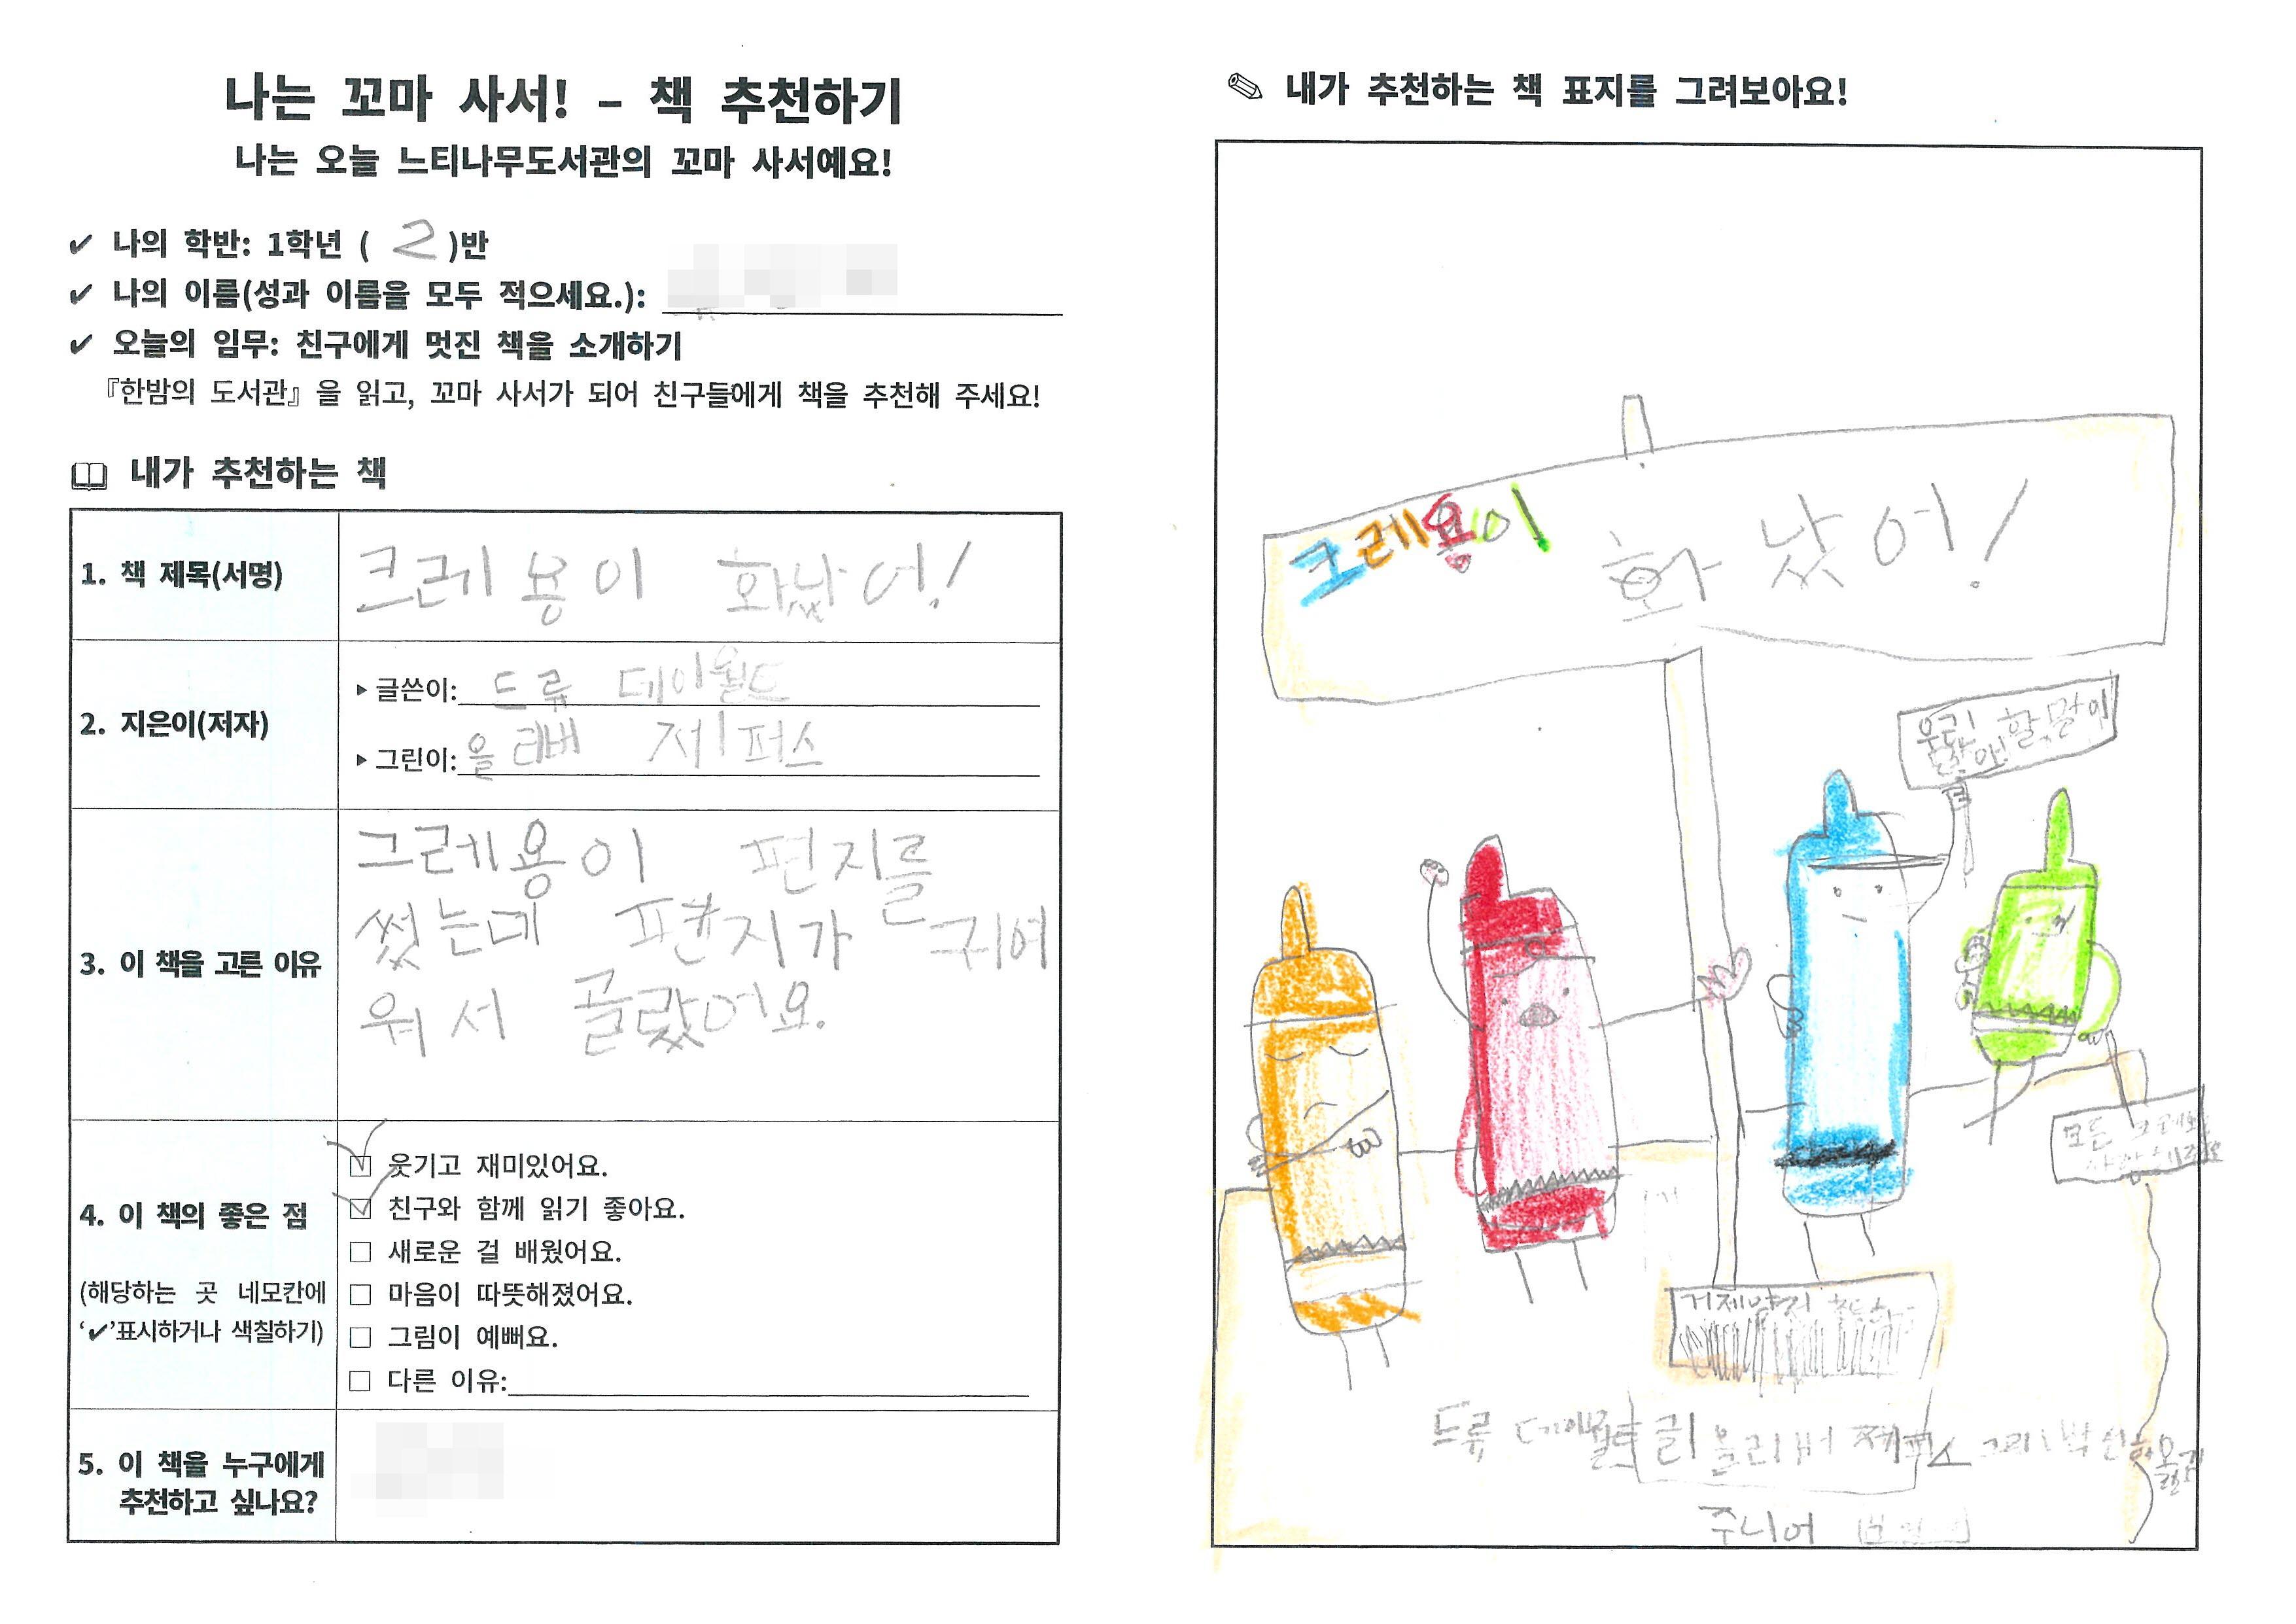 나는 꼬마 사서! – 책 추천하기
나는 오늘 느티나무도서관의 꼬마 사서예요!
✔ 나의 학반: 1학년 ( 2 )반
✔ 나의 이름(성과 이름을 모두 적으세요.):
✔ 오늘의 임무: 친구에게 멋진 책을 소개하기
『한밤의 도서관』을 읽고, 꼬마 사서가 되어 친구들에게 책을 추천해 주세요!
내가 추천하는 책
1. 책 제목(서명)
크레용이 화났어!
2. 지은이(저자)
▸글쓴이: 드류 데이월트
▸그린이: 올리버 제퍼스
3. 이 책을 고른 이유
그레용이 편지를
썼는데 편지가 귀여
워서 골랐어요.
4. 이 책의 좋은 점
(해당하는 곳 네모칸에
‘✔’표시하거나 색칠하기)
☑ 웃기고 재미있어요.
☑ 친구와 함께 읽기 좋아요.
□ 새로운 걸 배웠어요.
□ 마음이 따뜻해졌어요.
□ 그림이 예뻐요.
□ 다른 이유:
5. 이 책을 누구에게
추천하고 싶나요?
내가 추천하는 책 표지를 그려보아요!
크레용이 화났어!
우린 할말이
많아!
모든
드류 데이월트 글 올리버 제퍼스 그림 박선하 옮김
주니어